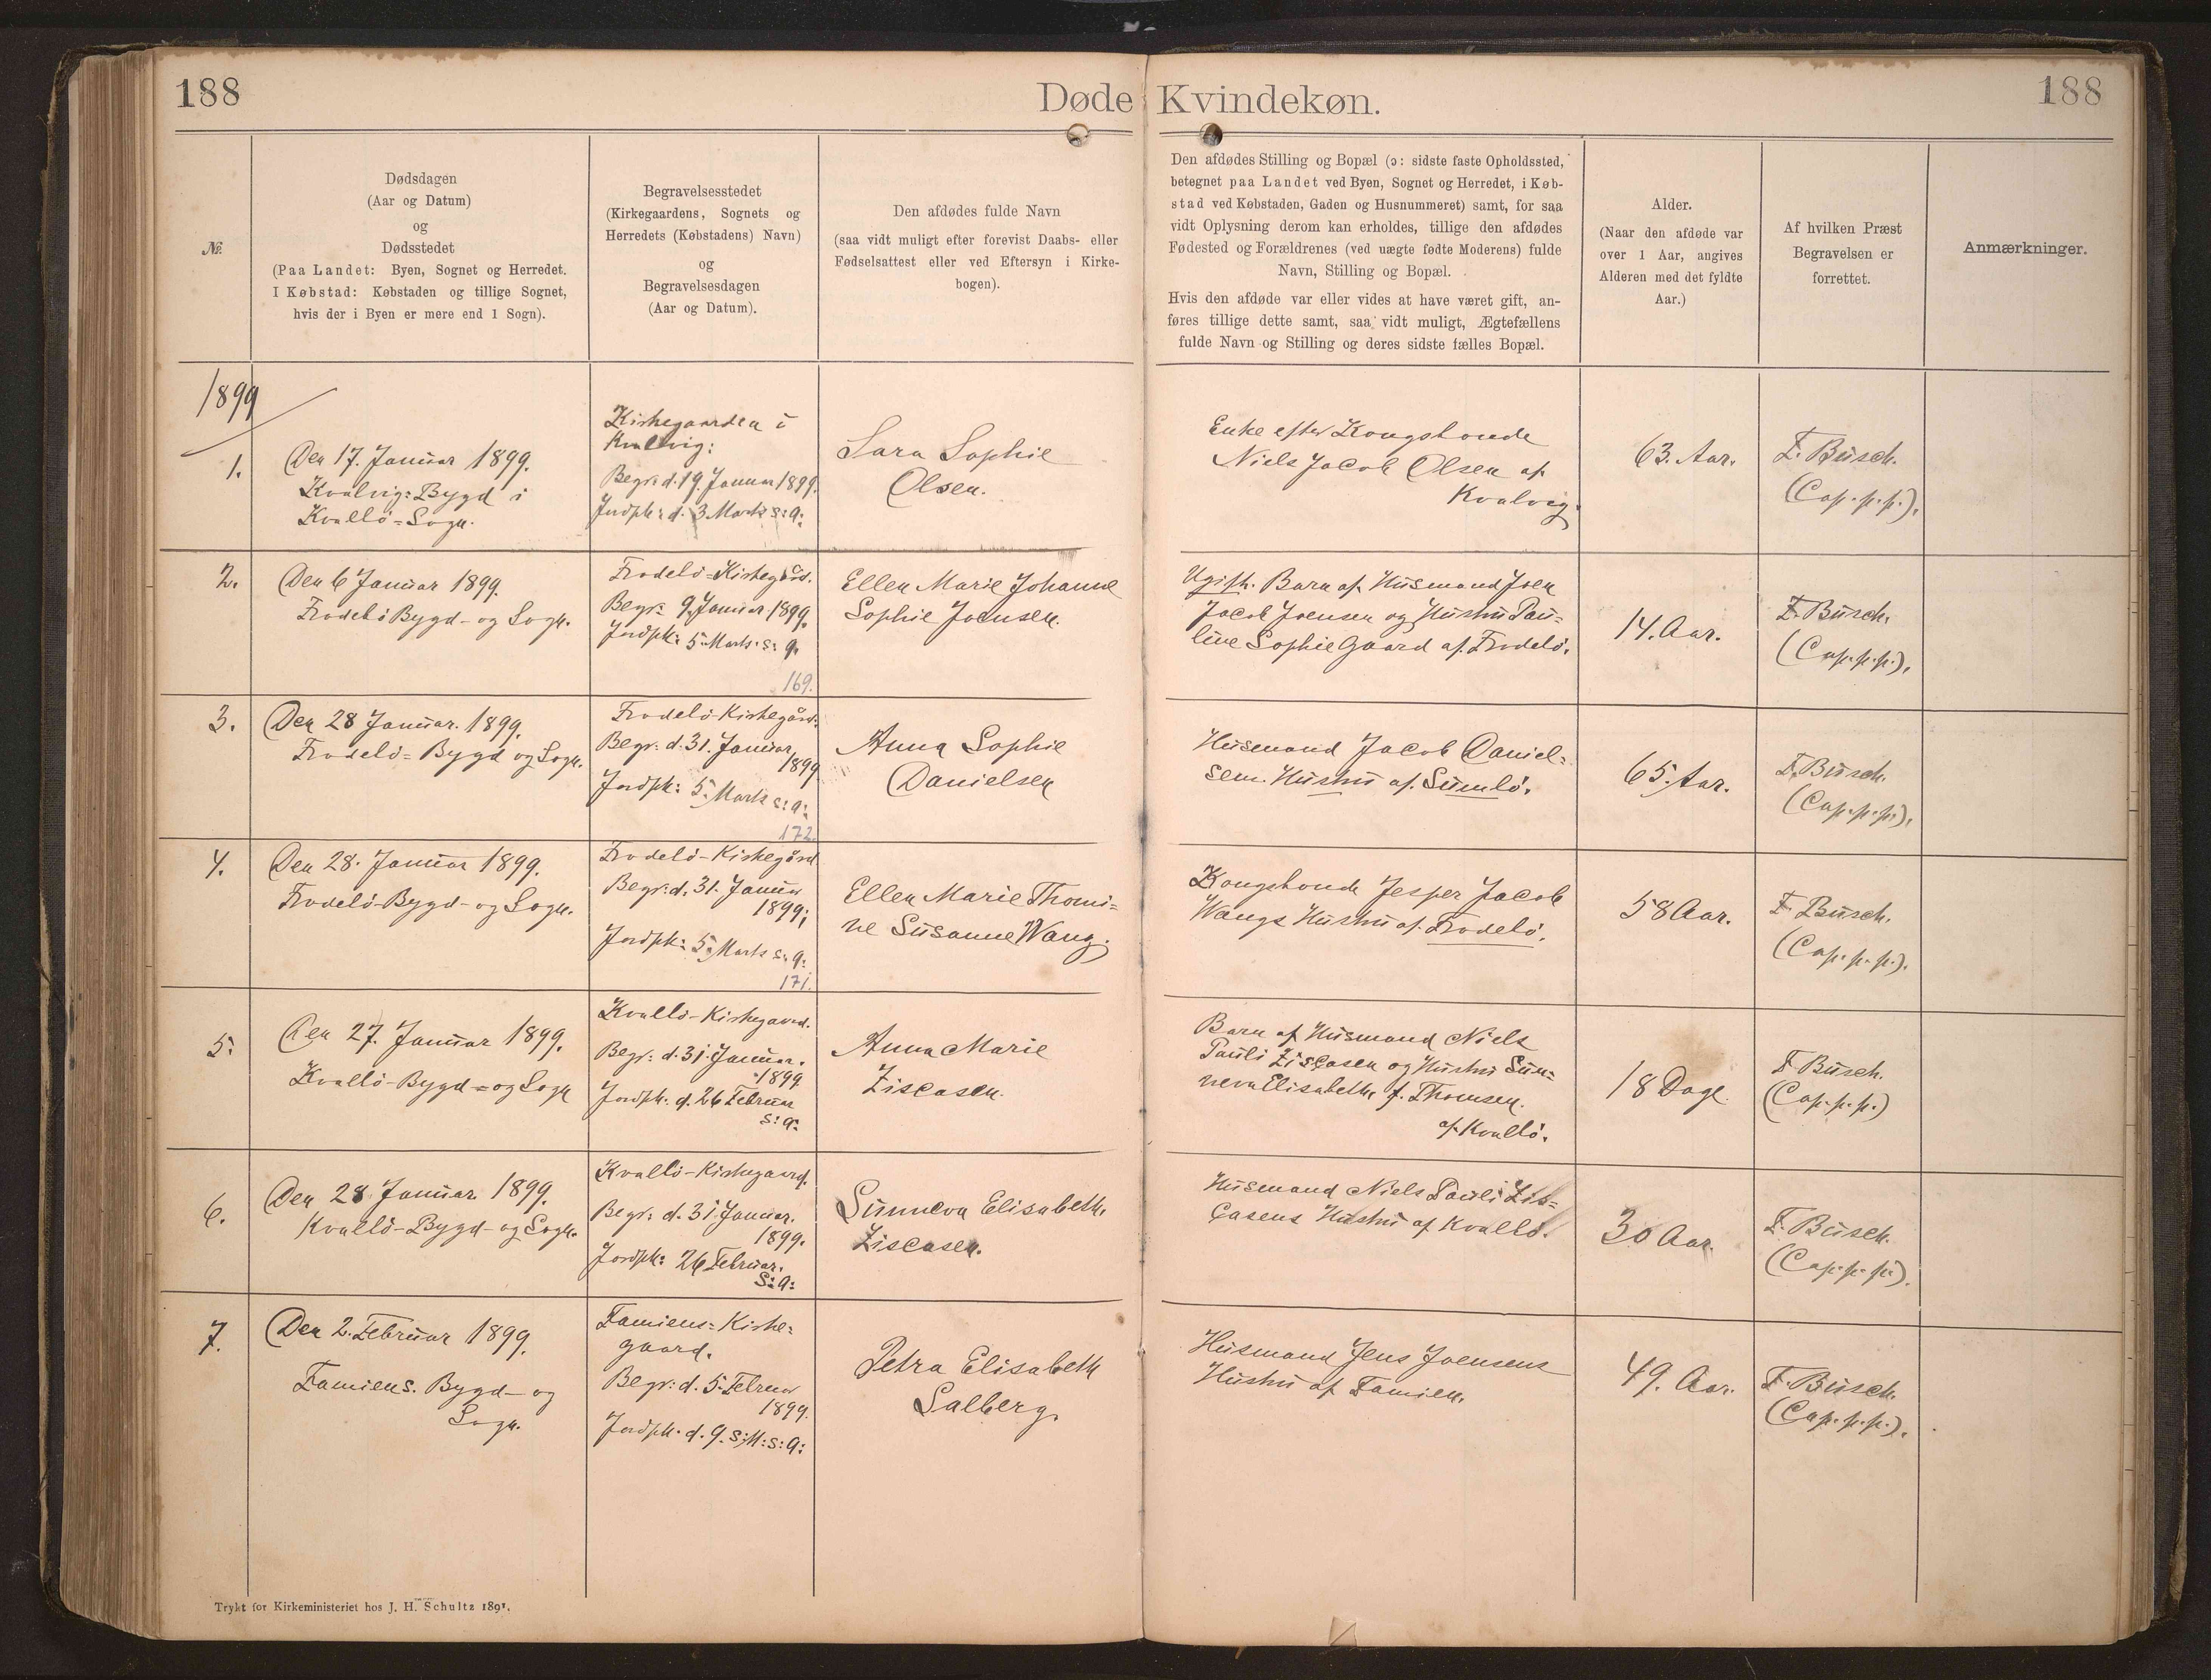 188
Døde Kvindekøn.
188
№
Dødsdagen
(Aar og Datum)
og
Dødsstedet
(Paa Landet: Byen, Sognet og Herredet.
I Købstad: Købstaden og tillige Sognet,
hvis der i Byen er mere end 1 Sogn).
Begravelsesstedet
(Kirkegaardens, Sognets og
Herredets (Købstadens) Navn)
og
Begravelsesdagen
(Aar og Datum).
Den afdødes fulde Navn
(saa vidt muligt efter forevist Daabs- eller
Fødselsattest eller ved Eftersyn i Kirke-
bogen).
Den afdødes Stilling og Bopæl (ɔ: sidste faste Opholdssted,
betegnet paa Landet ved Byen, Sognet og Herredet, i Køb-
stad ved Købstaden, Gaden og Husnummeret) samt, for saa
vidt Oplysning derom kan erholdes, tillige den afdødes
Fødested og Forældrenes (ved uægte fødte Moderens) fulde
Navn, Stilling og Bopæl.
Hvis den afdøde var eller vides at have været gift, an-
føres tillige dette samt, saa vidt muligt, Ægtefællens
fulde Navn og Stilling og deres sidste fælles Bopæl.
Alder.
(Naar den afdøde var
over 1 Aar, angives
Alderen med det fyldte
Aar.)
Af hvilken Præst
Begravelsen er
forrettet.
Anmærkninger.
1899
1.
Den 17. Januar 1899.
Kvalvig=Bygd i
Kvallö=Sogn.
Kirkegaarden i
Kvalvig:
Begr: d. 19. Januar 1899.
Jordpk: d. 3 Marts s: a:
Sara Sophie
Olsen.
Enke efter Kongsbonde
Niels Jacob Olsen af
Kvalvig.
63. Aar.
F. Busch.
(Cap. p. p.).
2.
Den 6 Januar 1899.
Frodebö Bygd- og Sogn.
Frodebö=Kirkegård.
Begr: 9. Januar 1899.
Jordpk: 5. Marts s: a.
169.
Ellen Marie Johanne
Sophie Joensen.
Ugift. Barn af Husmand Joen
Jacob Joensen og Hustru Pau-
line Sophie Gaard af Frodebö.
14. Aar.
F. Busch.
(Cap. p. p.).
3.
Den 28 Januar. 1899.
Frodebö= Bygd og Sogn.
Frodebö-Kirkegård.
Begr: d. 31. Januar
1899
Jordpk: 5. Marts s: a:
172.
Anna Sophie
Danielsen
Husmand Jacob Daniel=
sens Hustru af Sumbö.
65. Aar.
F. Busch.
(Cap. p. p.).
4.
Den 28. Januar 1899.
Frodebö-Bygd- og Sogn.
Frodebö-Kirkegård
Begr: d. 31. Januar
1899;
Jordpk: 5. Marts s: a:
171.
Ellen Marie Thomi=
ne Susanne Wang.
Kongsbonde Jesper Jacob
Wangs Hustru af Frodebö.
58 Aar.
F. Busch.
(Cap. p. p.).
5.
Den 27. Januar 1899.
Kvalbö-Bygd= og Sogn
Kvalbö-Kirkegaard.
Begr: d. 31. Januar.
1899
Jordpk. d. 26 Februar
s: a:
Anna Marie
Liscasen.
Barn af Husmand Niels
Pauli Liscasen og Hustru Sun=
neva Elisabeth f. Thomsen.
af Kvalbö.
18 Dage.
F. Busch.
(Cap. p. p.)
6.
Den 28 Januar 1899.
Kvalbö-Bygd- og Sogn.
Kvalbö-Kirkegaard.
Begr: d. 31. Januar.
1899.
Jordpk: 26 Februar.
s: a:
Sunneva Elisabeth
Liscasen.
Husmand Niels Pauli Lis=
casens Hustru af Kvalbö.
30 Aar.
F. Busch.
(Cap. p. p.).
7.
Den 2. Februar 1899.
Famiens. Bygd- og
Sogn.
Famiens= Kirke=
gaard.
Begr: d. 5. Februar
1899.
Jordpk. d. 9. s: M: s: a:
Petra Elisabeth
Salberg.
Husmand Jens Joensens
Hustru af Famien.
49. Aar.
F. Busch.
(Cap. p. p.).
Trykt for Kirkeministeriet hos J. H. Schultz 1891.